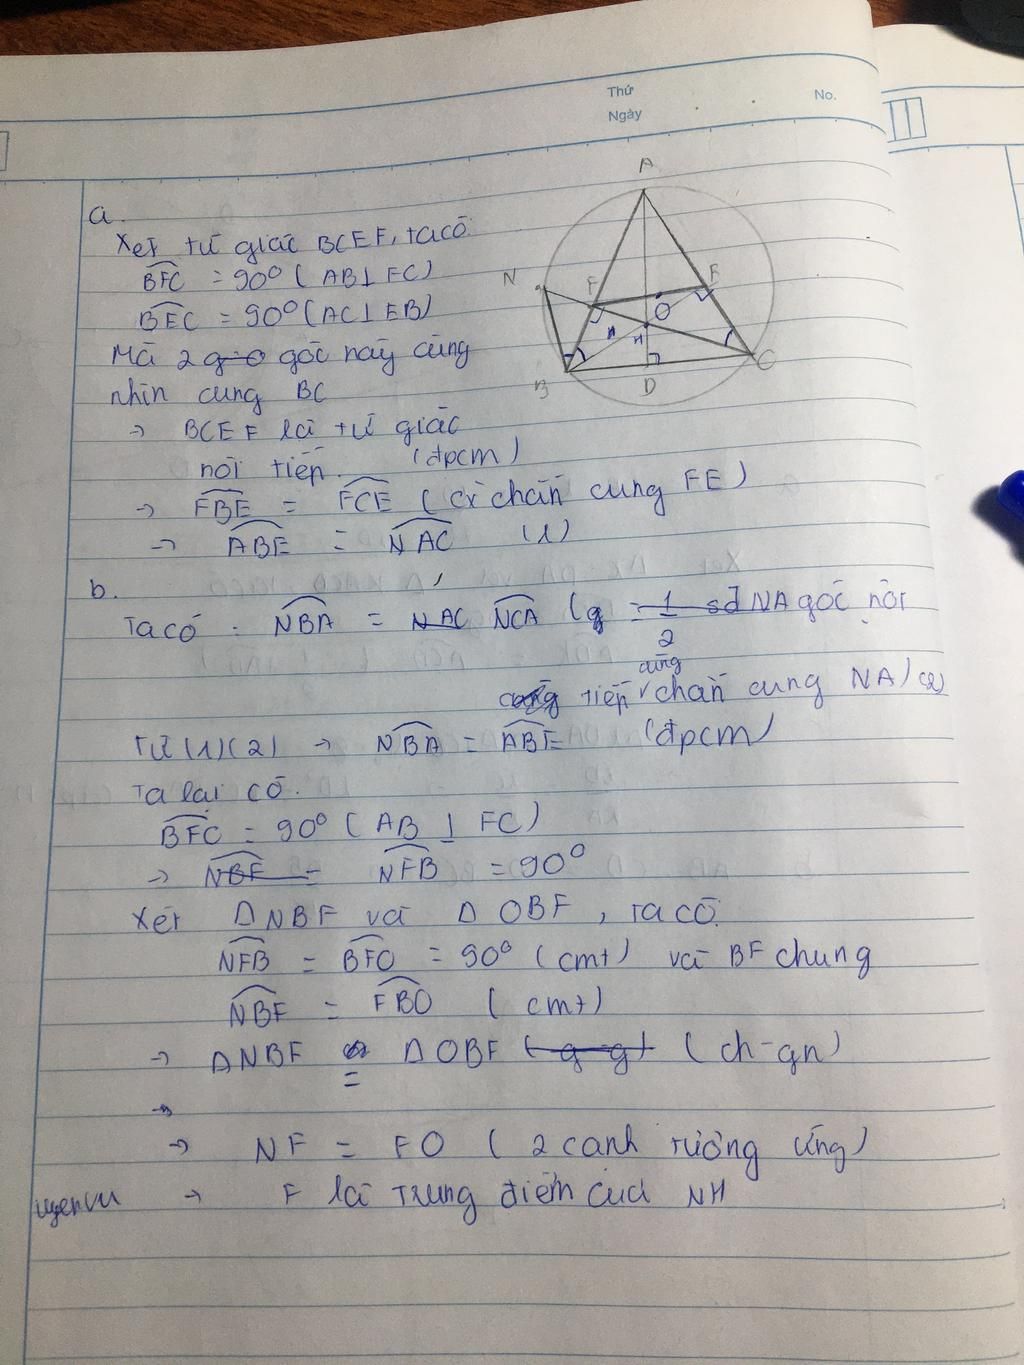 Thứ
Ngày
No.
a.
Xét tứ giác BCEF, ta có
BFC = 90° (AB⊥FC)
BEC = 90° (AC⊥EB)
Mà 2 góc này cùng
nhìn cung BC
→ BCEF là tứ giác
nội tiếp. (đpcm)
→ FBE = FCE (cù chắn cung FE)
→ ABE = NAC (1)
A
N
F
E
O
H
B
D
C
b.
Ta có : NBA = NAC NCA (g = 1/2 sđ NA góc nội
cùng
tiếp chắn cung NA) (2)
Từ (1)(2) → NBA = ABE (đpcm)
Ta lại có.
BFC = 90° (AB ⊥ FC)
→ NBF = NFB = 90°
Xét ΔNBF và ΔOBF, ta có
NFB = BFO = 90° (cmt) và BF chung
NBF = FBO (cmt)
→ ΔNBF = ΔOBF (g-g) (ch-gn)
→
→ NF = FO (2 cạnh tương ứng)
→ F là trung điểm của NH